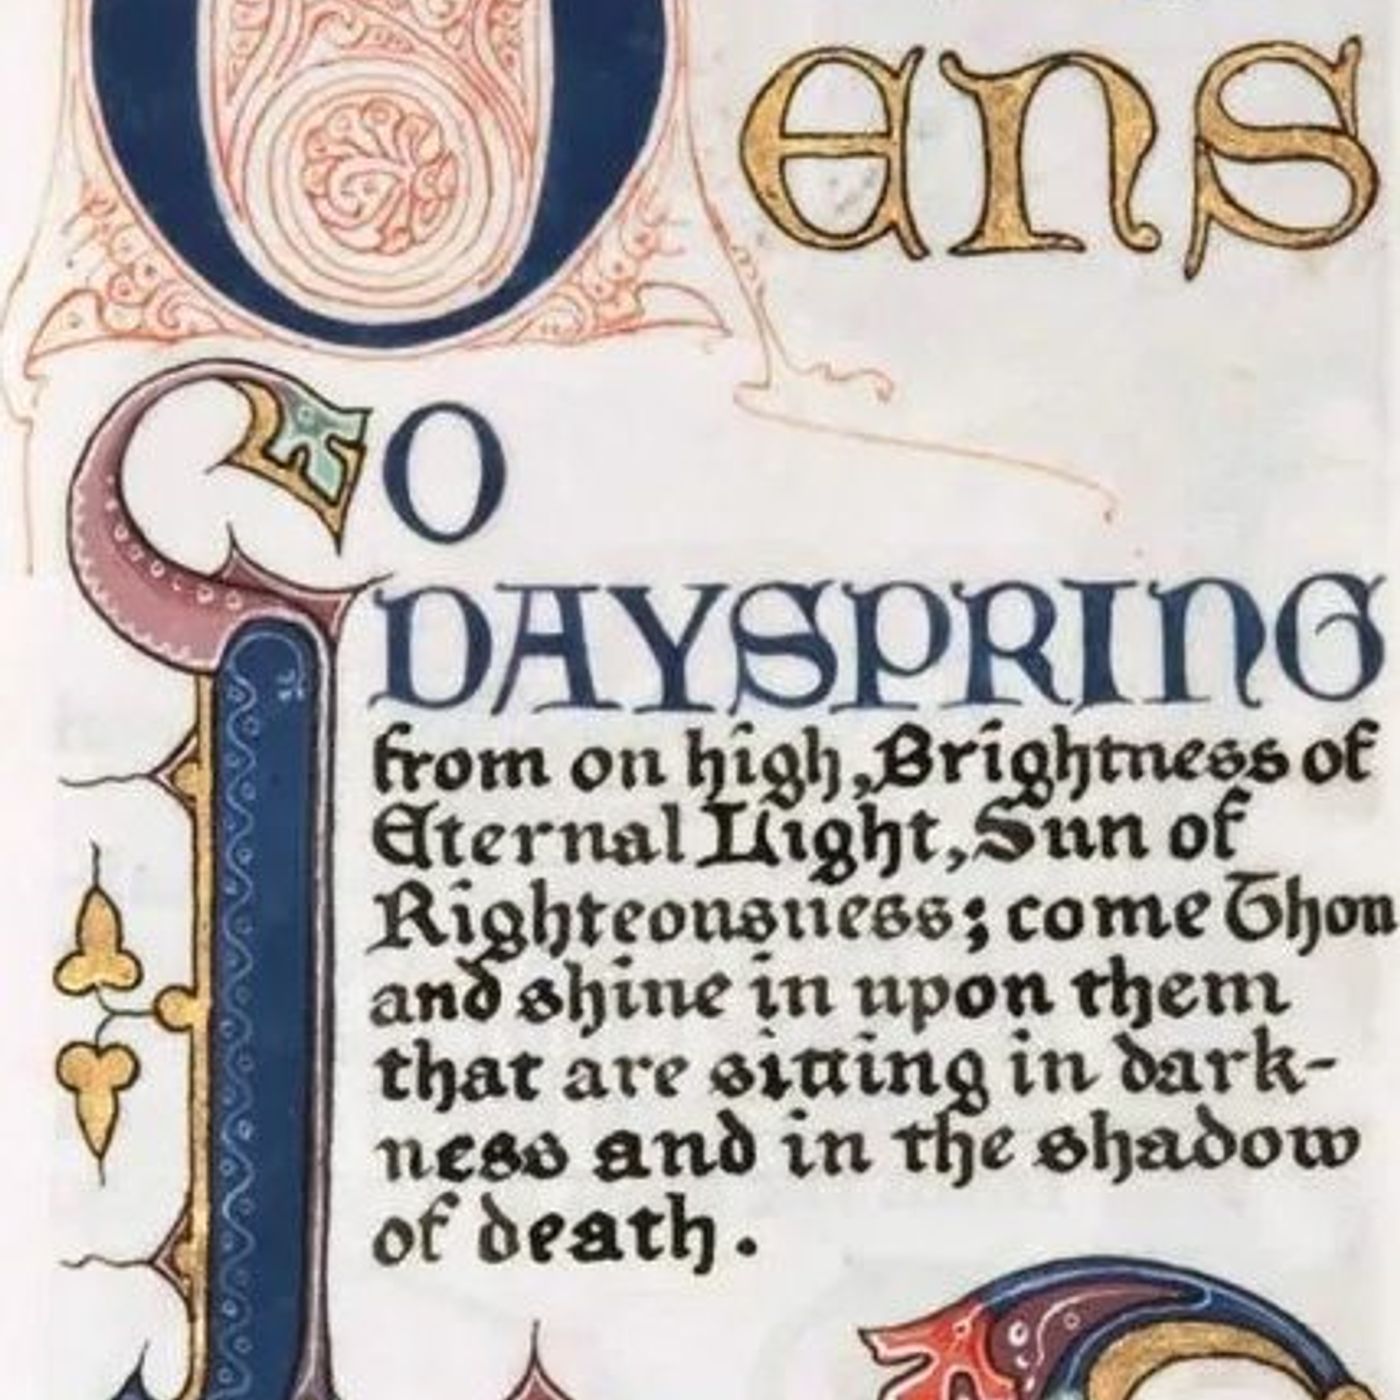 Oens
O
DAYSPRING
from on high, Brightness of
Eternal Light, Sun of
Righteousness; come Thou
and shine in upon them
that are sitting in dark-
ness and in the shadow
of death.